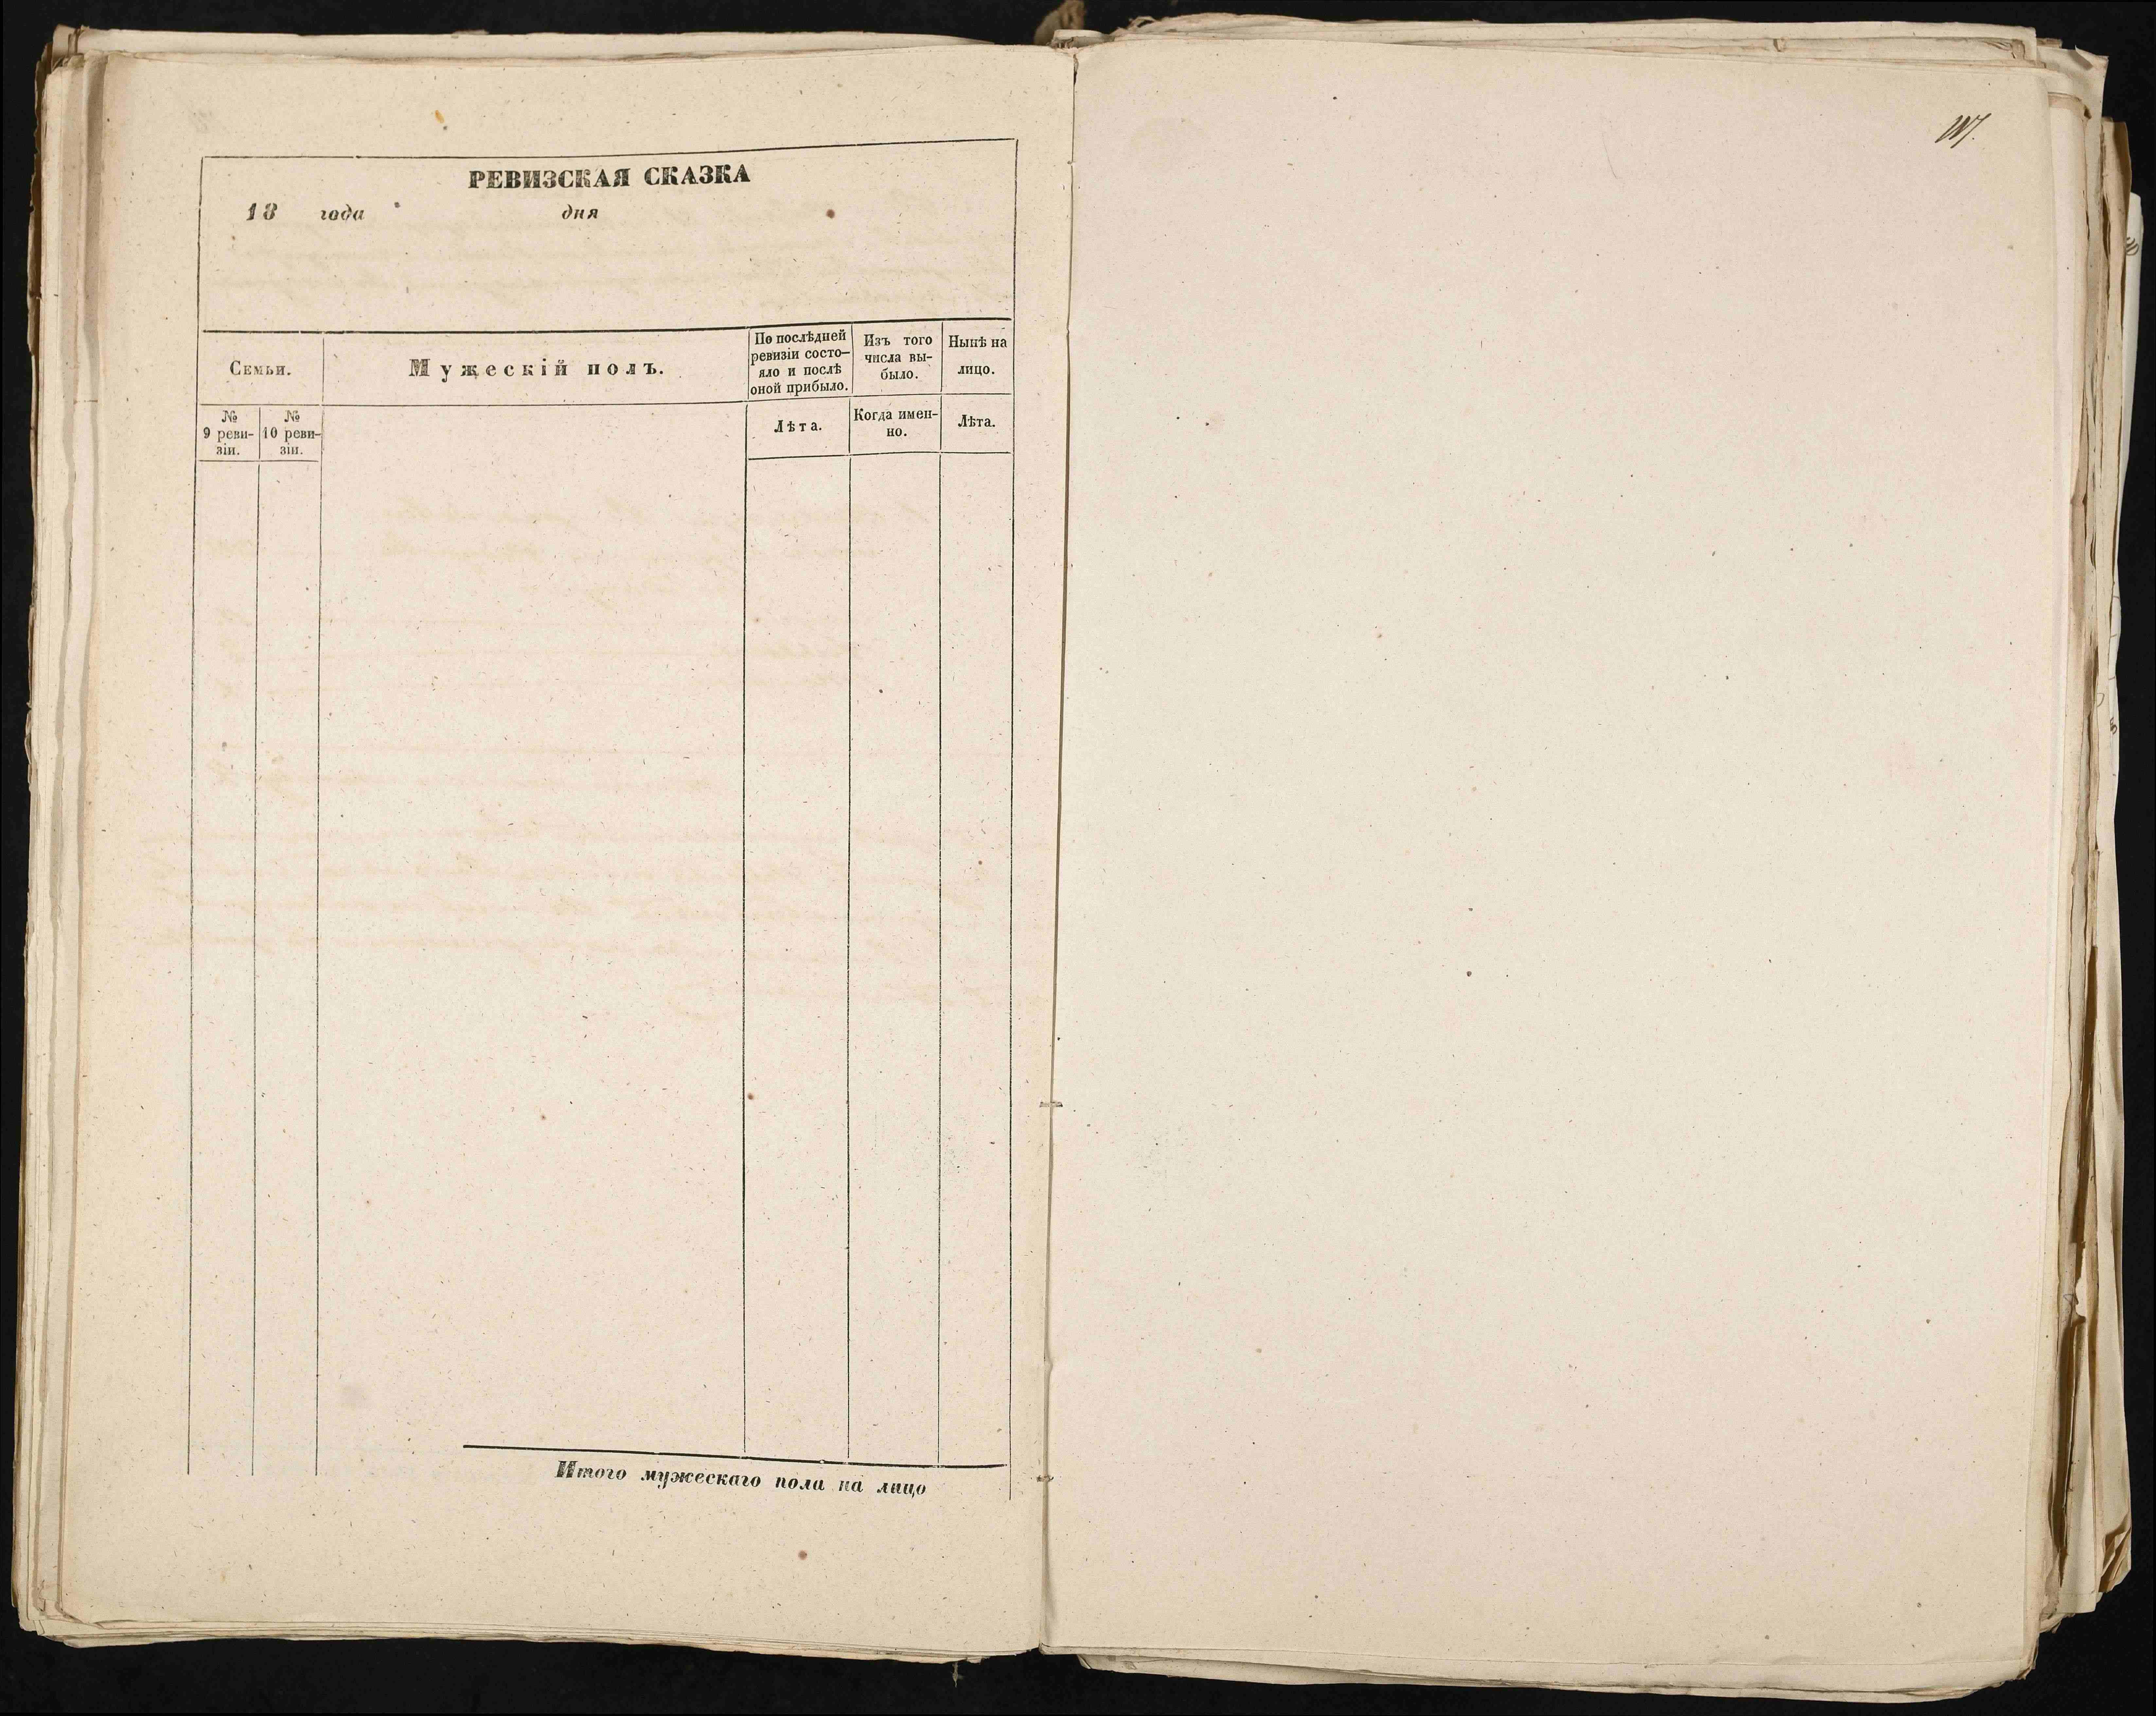 РЕВИЗСКАЯ СКАЗКА
18 года дня
Семьи.
Мужескій полъ.
По послѣдней
ревизіи состо-
яло и послѣ
оной прибыло.
Изъ того
числа вы-
было.
Нынѣ на
лицо.
№
9 реви-
зіи.
№
10 реви-
зіи.
Лѣта.
Когда имен-
но.
Лѣта.
Итого мужескаго пола на лицо